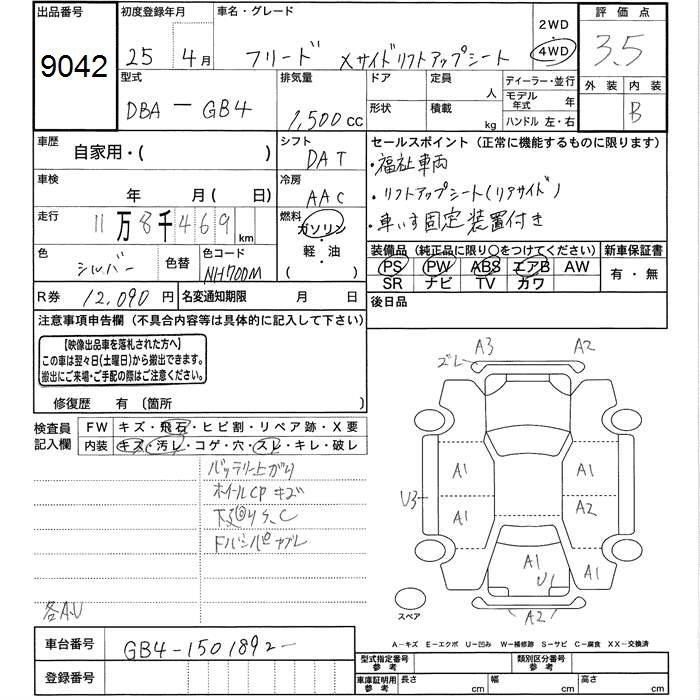 出品番号 9042
初度登録年月 25年4月
車名・グレード フリード Xサイドリフトアップシート
2WD
4WD
評価点 3.5
外装 内装
B
型式 DBA-GB4
排気量 1,500cc
ドア 定員 人
形状 積載 kg
ディーラー・並行
モデル年式 年
ハンドル 左・右
車歴 自家用・( )
シフト DAT
車検 年 月(日)
冷房 AAC
走行 11万8千469km
燃料 ガソリン・軽・油 ( )
色 シルバー 色替
色コード NH700M
R券 12,090円
名変通知期限 月 日
セールスポイント(正常に機能するものに限ります)
・福祉車両
・リフトアップシート(リアサイド)
・車いす固定装置付き
装備品(純正品に限り○をつけてください) 新車保証書
PS PW ABS エアB AW
SR ナビ TV カワ
有・無
後日品
注意事項申告欄(不具合内容等は具体的に記入して下さい)
【映像出品車を落札された方へ】
この車は翌々日(土曜日)から搬出できます。
搬出にご来場・ご手配の際はご注意ください。
修復歴 有(箇所 )
検査員記入欄
FW キズ・飛石・ヒビ割・リペア跡・X要
内装 キズ・汚レ・コゲ・穴・スレ・キレ・破レ
バッテリー上がり
ホイールCPキズ
下S@4S、C
各A.U
ズレ A3 A2
A1 A1
U3
A1 A2
A1 U1 A1
A2
スペア
A-キズ E-エクボ U-凹み W-補修跡 S-サビ C-腐食 XX-交換済
車台番号 GB4-1501892-
登録番号
型式指定番号 参考
類別区分番号 参考
車庫証明用 参考
長さ cm 幅 cm 高さ cm